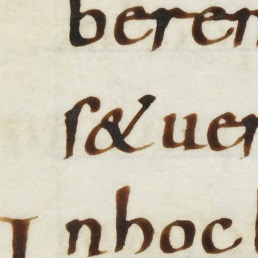 beren
s&uer
I nhoc